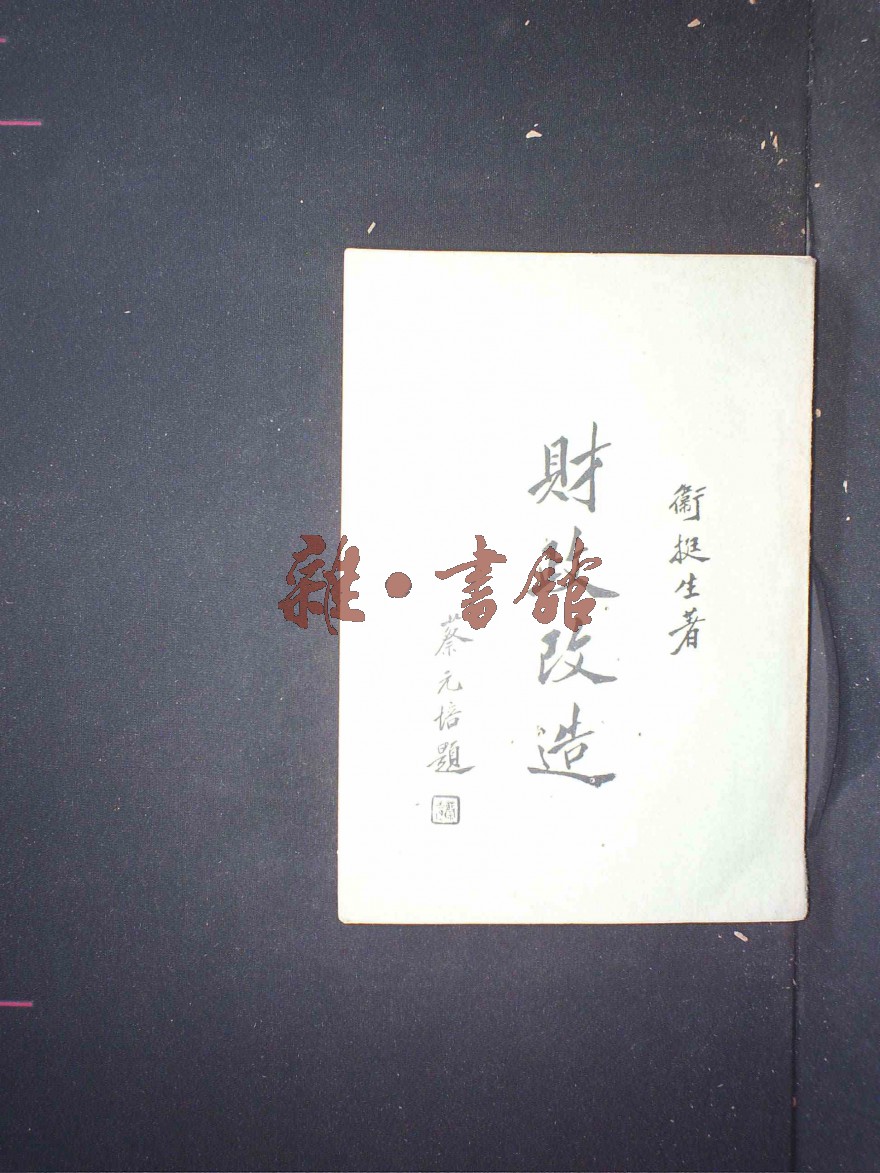 衞挺生著
財政改造
蔡元培題
雜·書館